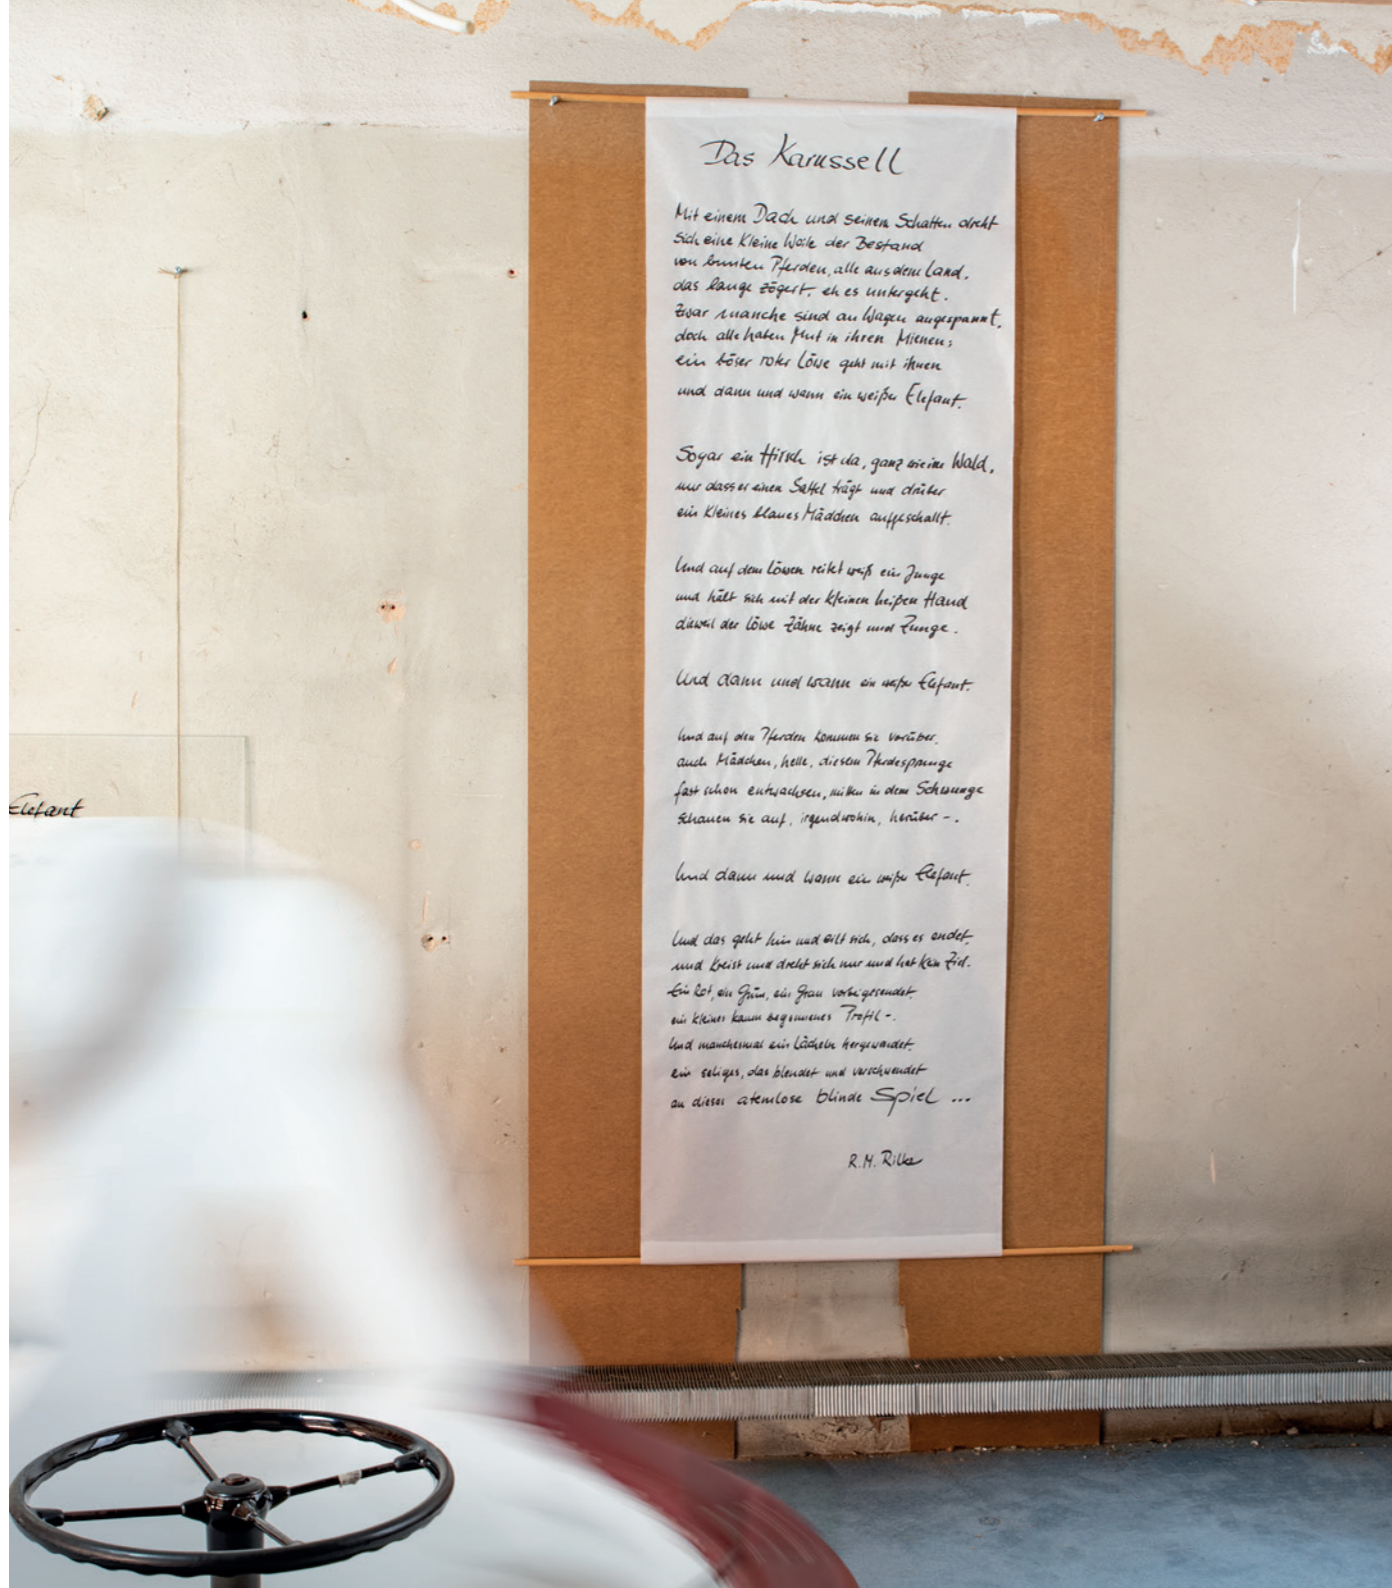 Das Karussell
Mit einem Dach und seinem Schatten dreht
sich eine kleine Weile der Bestand
von bunten Pferden, alle aus dem Land,
das lange zögert, eh es untergeht.
Zwar manche sind an Wagen angespannt,
doch alle haben Mut in ihren Mienen;
ein böser roter Löwe geht mit ihnen
und dann und wann ein weißer Elefant.
Sogar ein Hirsch ist da, ganz wie im Wald,
nur dass er einen Sattel trägt und drüber
ein kleines blaues Mädchen aufgeschnallt.
Und auf dem Löwen reitet weiß ein Junge
und hält sich mit der kleinen heißen Hand
dieweil der Löwe Zähne zeigt und Zunge.
Und dann und wann ein weißer Elefant.
Und auf den Pferden kommen sie vorüber,
auch Mädchen, helle, diesem Pferdesprunge
fast schon entwachsen, mitten in dem Schwunge
schauen sie auf, irgendwohin, herüber -.
Und dann und wann ein weißer Elefant.
Und das geht hin und eilt sich, dass es endet,
und kreist und dreht sich nur und hat kein Ziel.
Ein Rot, ein Grün, ein Grau vorbeigesendet,
ein kleines kaum begonnenes Profil -.
Und manchesmal ein Lächeln hergewendet,
ein seliges, das blendet und verschwendet
an dieses atemlose blinde Spiel ...
R. M. Rilke
Elefant